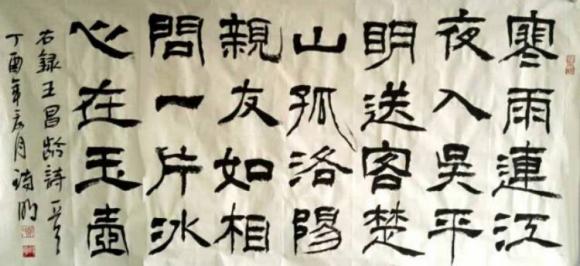 寒雨連江
夜入吳平
明送客楚
山孤洛陽
親友如相
問一片冰
心在玉壺
右錄王昌齡詩一首
丁酉年六月